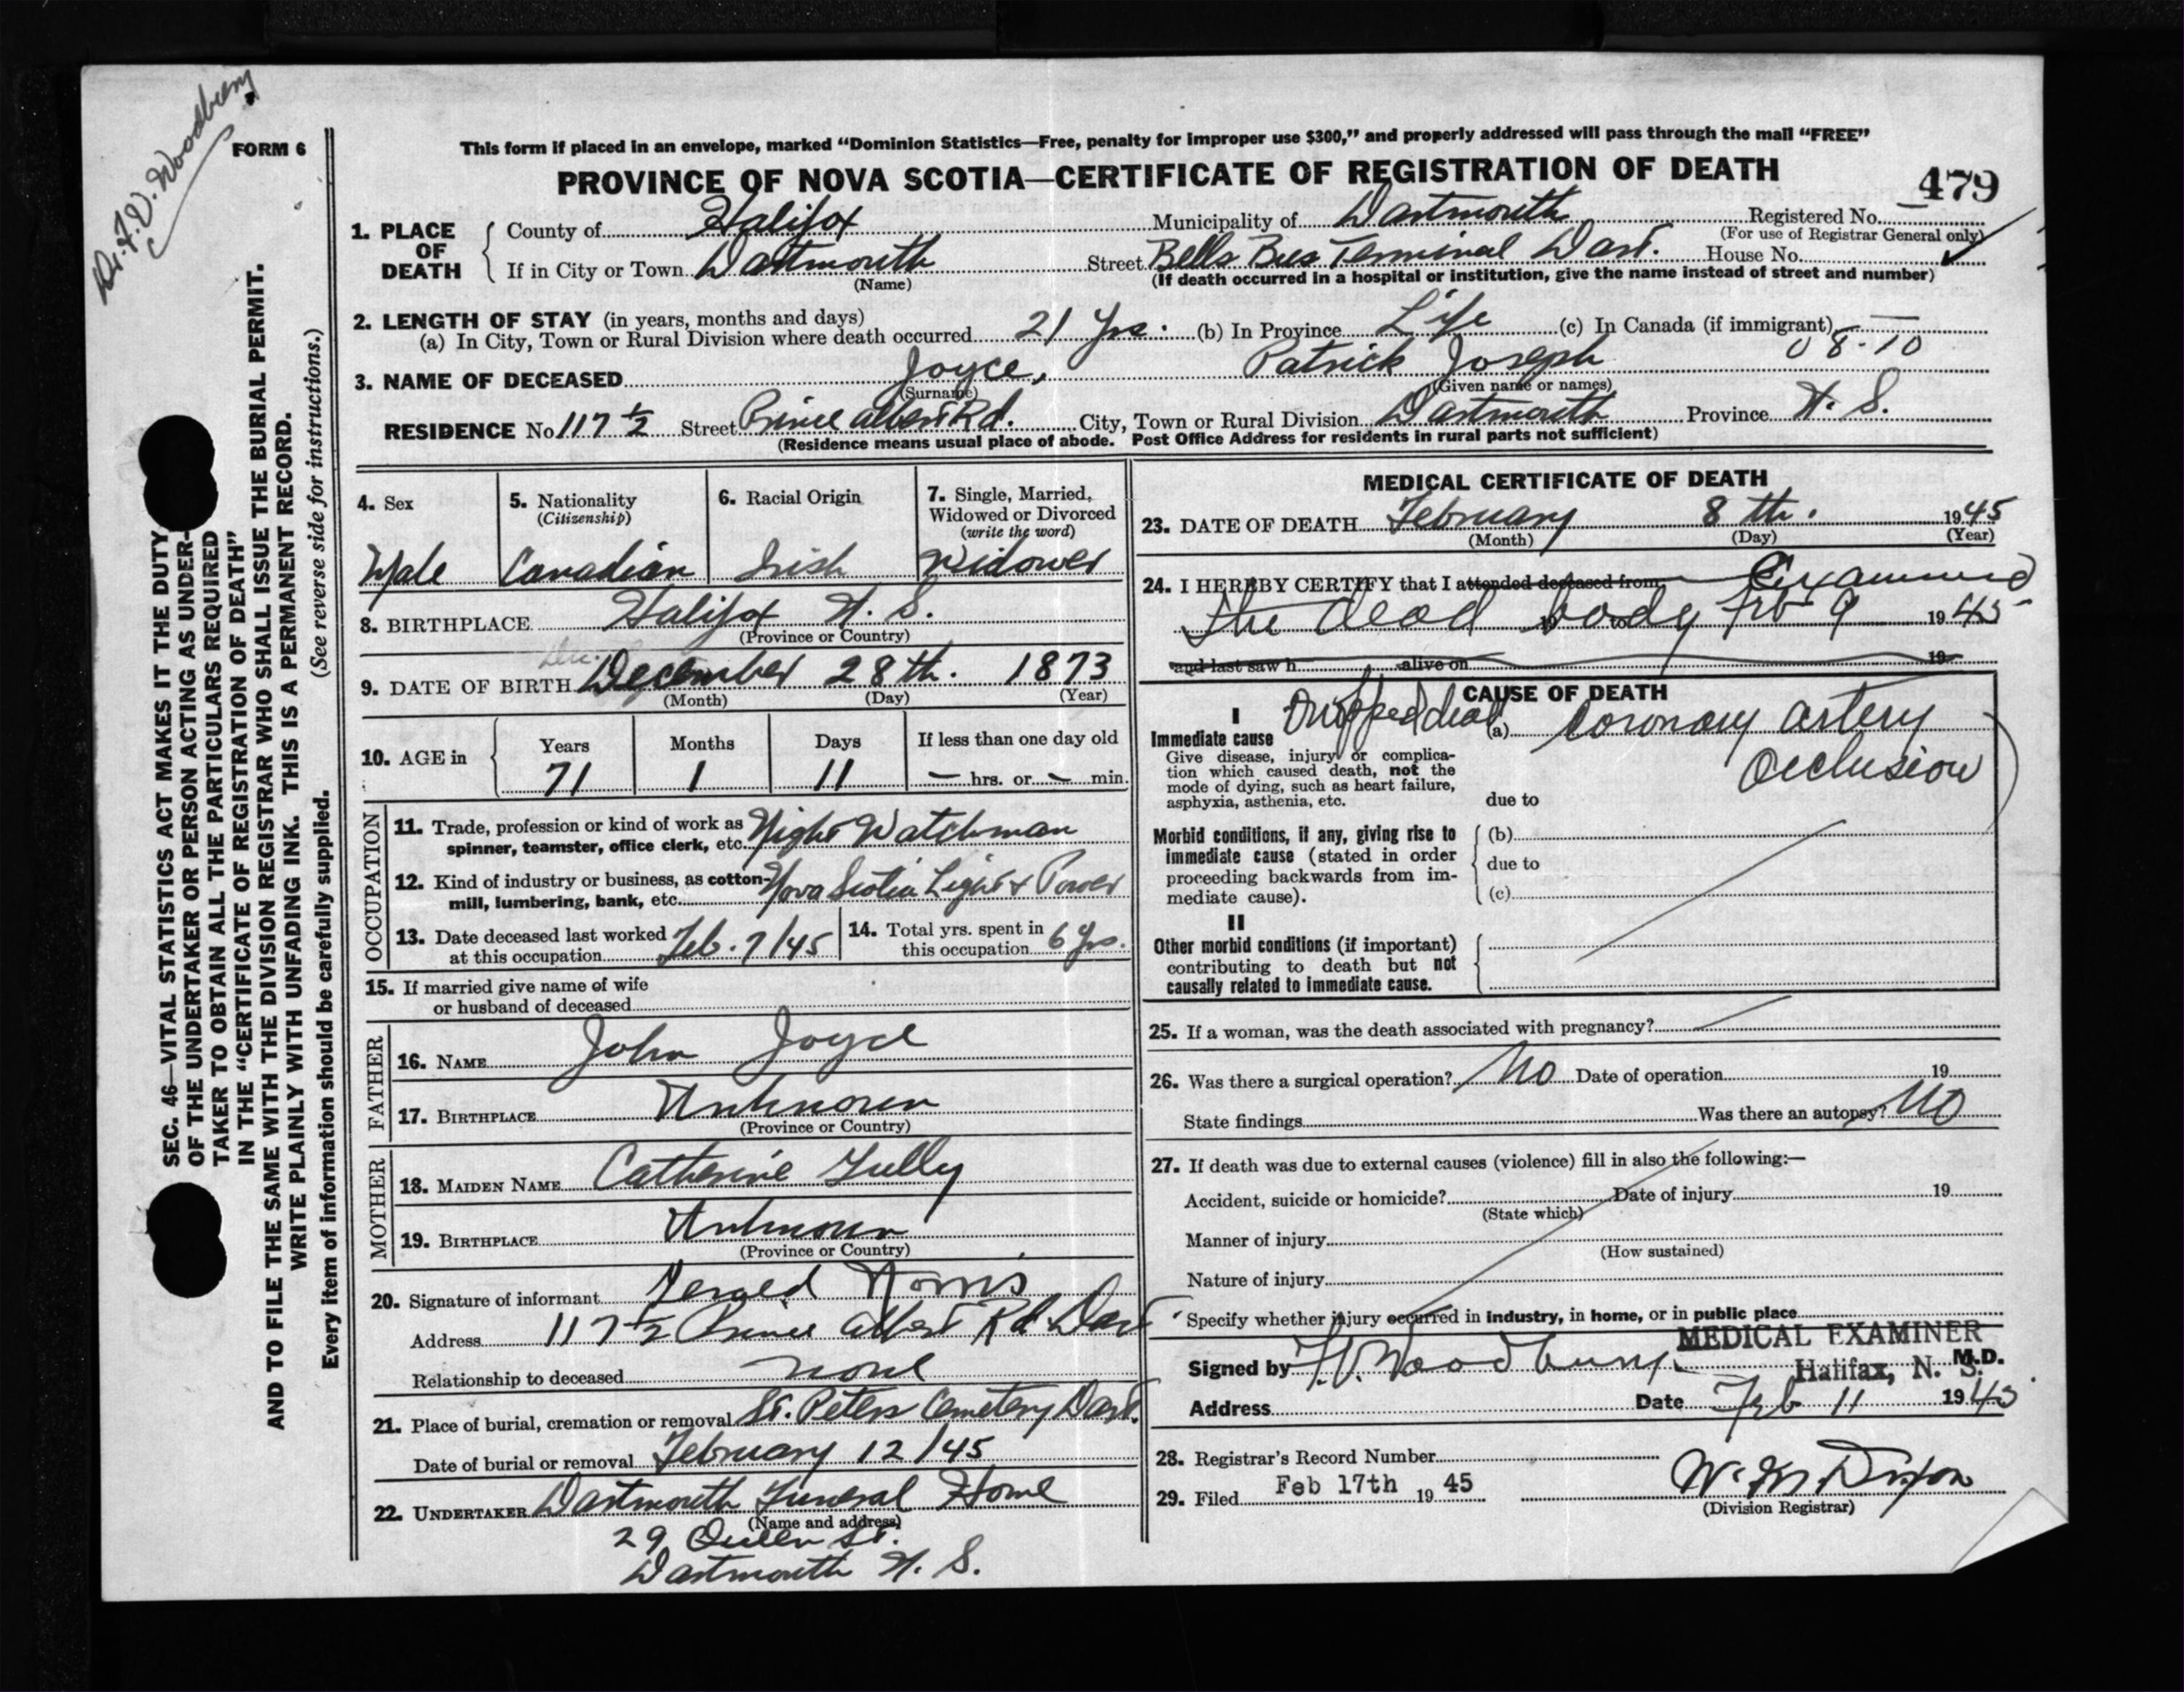 Dr. F. V. Woodbury
FORM 6
This form if placed in an envelope, marked “Dominion Statistics—Free, penalty for improper use $300,” and properly addressed will pass through the mail “FREE”
PROVINCE OF NOVA SCOTIA—CERTIFICATE OF REGISTRATION OF DEATH
479
1. PLACE OF DEATH County of Halifax Municipality of Dartmouth Registered No.
(For use of Registrar General only)
If in City or Town Dartmouth Street Bells Bus Terminal Dart. House No.
(Name) (If death occurred in a hospital or institution, give the name instead of street and number)
2. LENGTH OF STAY (in years, months and days)
(a) In City, Town or Rural Division where death occurred 21 Yrs. (b) In Province Life (c) In Canada (if immigrant) —
08-10
3. NAME OF DECEASED Joyce, Patrick Joseph
(Surname) (Given name or names)
RESIDENCE No 117 ½ Street Prince Albert Rd. City, Town or Rural Division Dartmouth Province N. S.
(Residence means usual place of abode. Post Office Address for residents in rural parts not sufficient)
4. Sex 5. Nationality (Citizenship) 6. Racial Origin 7. Single, Married, Widowed or Divorced (write the word)
Male Canadian Irish Widower
8. BIRTHPLACE Halifax N. S.
(Province or Country)
Dec.
9. DATE OF BIRTH December 28th. 1873
(Month) (Day) (Year)
10. AGE in Years Months Days If less than one day old
71 1 11 — hrs. or — min.
OCCUPATION
11. Trade, profession or kind of work as spinner, teamster, office clerk, etc. Night Watchman
12. Kind of industry or business, as cotton-mill, lumbering, bank, etc. Nova Scotia Light & Power
13. Date deceased last worked at this occupation Feb. 7/45 14. Total yrs. spent in this occupation 6 yrs.
15. If married give name of wife
or husband of deceased
FATHER
16. NAME John Joyce
17. BIRTHPLACE Unknown
(Province or Country)
MOTHER
18. MAIDEN NAME Catherine Tully
19. BIRTHPLACE Unknown
(Province or Country)
20. Signature of informant Gerald Norris
Address 117 ½ Prince Albert Rd Dart
Relationship to deceased none
21. Place of burial, cremation or removal St. Peters Cemetery Dart.
Date of burial or removal February 12/45
22. UNDERTAKER Dartmouth Funeral Home
(Name and address)
29 Queen St.
Dartmouth N. S.
MEDICAL CERTIFICATE OF DEATH
23. DATE OF DEATH February 8th. 1945
(Month) (Day) (Year)
24. I HEREBY CERTIFY that I attended deceased from Examined
the dead body Feb 9 1945
19 to
and last saw h alive on 19
CAUSE OF DEATH
I
Immediate cause Dropped dead (a) Coronary artery
Occlusion
Give disease, injury or complica-
tion which caused death, not the
mode of dying, such as heart failure,
asphyxia, asthenia, etc. due to
Morbid conditions, if any, giving rise to (b)
immediate cause (stated in order due to
proceeding backwards from im-
mediate cause). (c)
II
Other morbid conditions (if important)
contributing to death but not
causally related to immediate cause.
25. If a woman, was the death associated with pregnancy?
26. Was there a surgical operation? No Date of operation 19
State findings Was there an autopsy? No
27. If death was due to external causes (violence) fill in also the following:—
Accident, suicide or homicide? Date of injury 19
(State which)
Manner of injury
(How sustained)
Nature of injury
Specify whether injury occurred in industry, in home, or in public place
MEDICAL EXAMINER
Signed by F. V. Woodbury M.D.
Halifax, N. S.
Address Date Feb 11 1945
28. Registrar's Record Number
29. Filed Feb 17th 1945
(Division Registrar)
SEC. 46—VITAL STATISTICS ACT MAKES IT THE DUTY
OF THE UNDERTAKER OR PERSON ACTING AS UNDER-
TAKER TO OBTAIN ALL THE PARTICULARS REQUIRED
IN THE “CERTIFICATE OF REGISTRATION OF DEATH”
AND TO FILE THE SAME WITH THE DIVISION REGISTRAR WHO SHALL ISSUE THE BURIAL PERMIT.
WRITE PLAINLY WITH UNFADING INK. THIS IS A PERMANENT RECORD.
Every item of information should be carefully supplied. (See reverse side for instructions.)